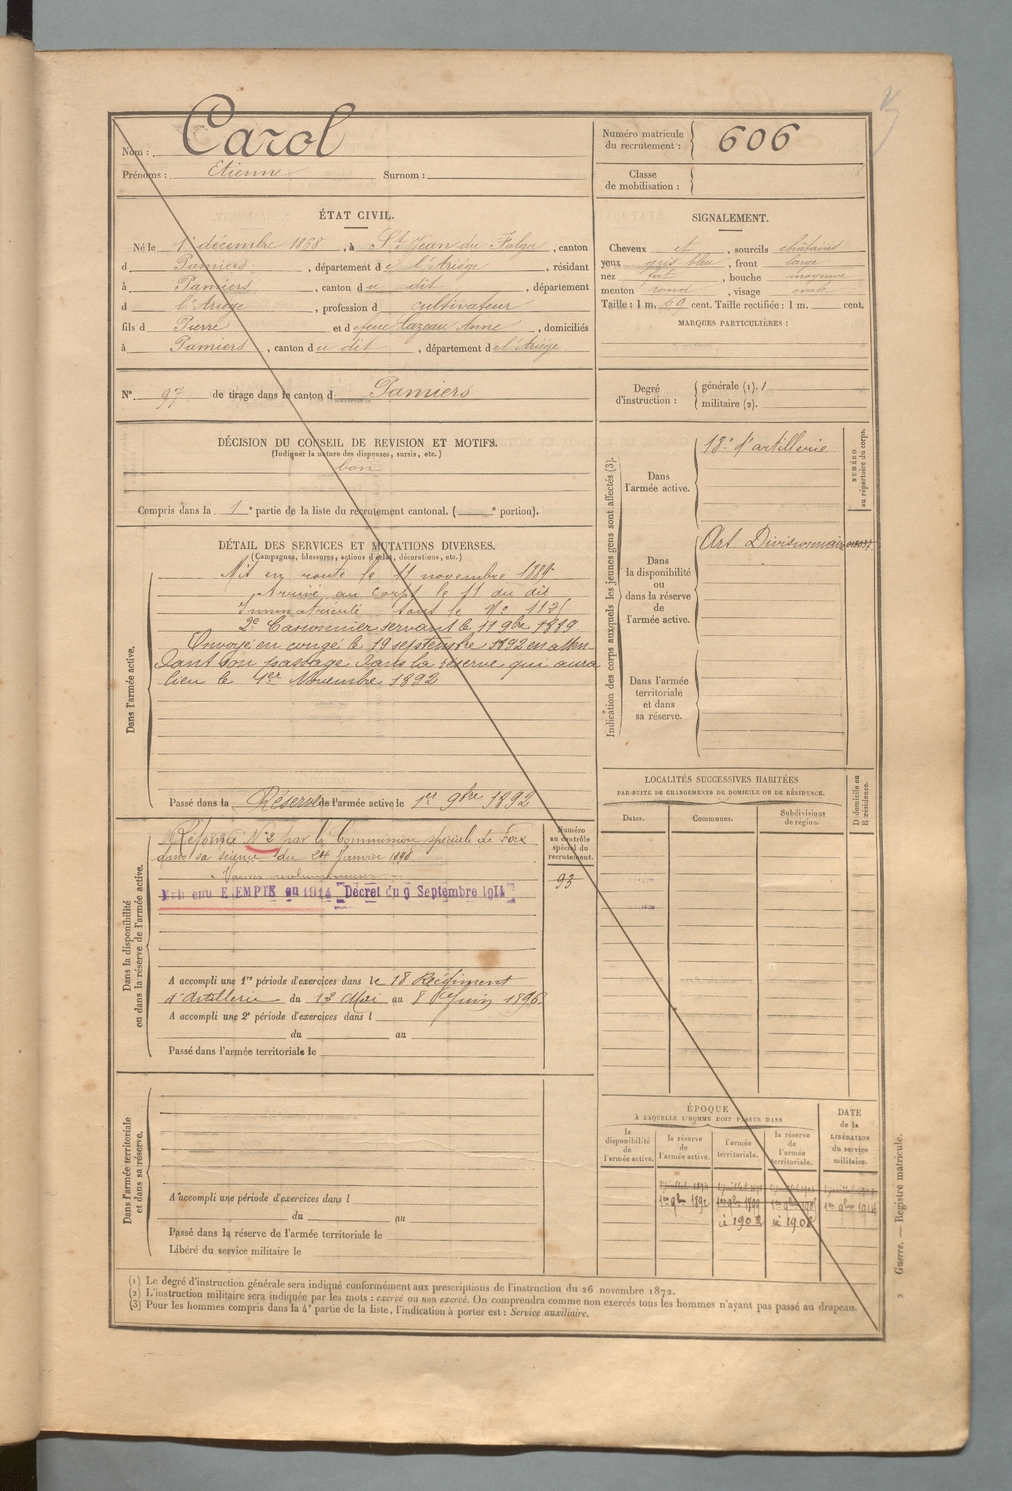 Nom : Carol
Prénoms : Etienne Surnom :
Numéro matricule
du recrutement : 606
Classe
de mobilisation :
ÉTAT CIVIL.
Né le 1er décembre 1868, à St Jean du Falga, canton
d Pamiers, département de l'Ariège, résidant
à Pamiers, canton du dit, département
d l'Ariège, profession d cultivateur
fils d Pierre et d feue Cazeau Anne, domiciliés
à Pamiers, canton du dit, département de l'Ariège
SIGNALEMENT.
Cheveux et, sourcils châtains
yeux gris bleu, front large
nez fort, bouche moyenne
menton rond, visage ovale
Taille : 1 m. 69 cent. Taille rectifiée : 1 m. cent.
MARQUES PARTICULIÈRES :
N° 97 de tirage dans le canton d Pamiers
Degré
d'instruction :
générale (1). 1
militaire (2).
DÉCISION DU CONSEIL DE REVISION ET MOTIFS.
(Indiquer la nature des dispenses, sursis, etc.)
bon
Compris dans la 1e partie de la liste du recrutement cantonal. ( e portion).
DÉTAIL DES SERVICES ET MUTATIONS DIVERSES.
(Campagnes, blessures, actions d'éclat, décorations, etc.)
Dans l'armée active.
Mis en route le 11 novembre 1889
Arrivé au corps le 11 du dit
Immatriculé sous le N°
2e Canonnier servant le 11 9bre 1889
Envoyé en congé le 19 septembre 1892 en atten-
dant son passage dans la réserve qui aura
lieu le 1er Novembre 1892
Passé dans la Réserve de l'armée active le 1er 9bre 1892
Indication des corps auxquels les jeunes gens sont affectés (3).
Dans
l'armée active.
18e d'artillerie
NUMÉRO
au répertoire du corps.
Dans
la disponibilité
ou
dans la réserve
de
l'armée active.
Art Divisionnaire
Dans l'armée
territoriale
et dans
sa réserve.
LOCALITÉS SUCCESSIVES HABITÉES
PAR SUITE DE CHANGEMENTS DE DOMICILE OU DE RÉSIDENCE.
Dates.
Communes.
Subdivisions
de région.
D domicile ou
R résidence.
Dans la disponibilité
ou dans la réserve de l'armée active.
Réformé N°2 par la Commission spéciale de Foix
dans sa séance du 24 Janvier 1898
Maintenu EXEMPTÉ en 1914 Décret du 9 Septembre 1914
Numéro
au contrôle
spécial du
recrutement.
93
A accompli une 1re période d'exercices dans le 18 Régiment
d'Artillerie du 12 Mai au 8 Juin 1896
A accompli une 2e période d'exercices dans l
du au
Passé dans l'armée territoriale le
Dans l'armée territoriale
et dans sa réserve.
A accompli une période d'exercices dans l
du au
Passé dans la réserve de l'armée territoriale le
Libéré du service militaire le
ÉPOQUE
À LAQUELLE L'HOMME DOIT PASSER DANS
la
disponibilité
de
l'armée active.
la réserve
de
l'armée active.
l'armée
territoriale.
la réserve
de
l'armée
territoriale.
DATE
de la
LIBÉRATION
du service
militaire.
1er 9bre 1892 1er 9bre 1899
à 1902 à 1908
(1) Le degré d'instruction générale sera indiqué conformément aux prescriptions de l'instruction du 26 novembre 1872.
(2) L'instruction militaire sera indiquée par les mots : exercé ou non exercé. On comprendra comme non exercés tous les hommes n'ayant pas passé au drapeau.
(3) Pour les hommes compris dans la 4e partie de la liste, l'indication à porter est : Service auxiliaire.
2 Guerre. — Registre matricule.